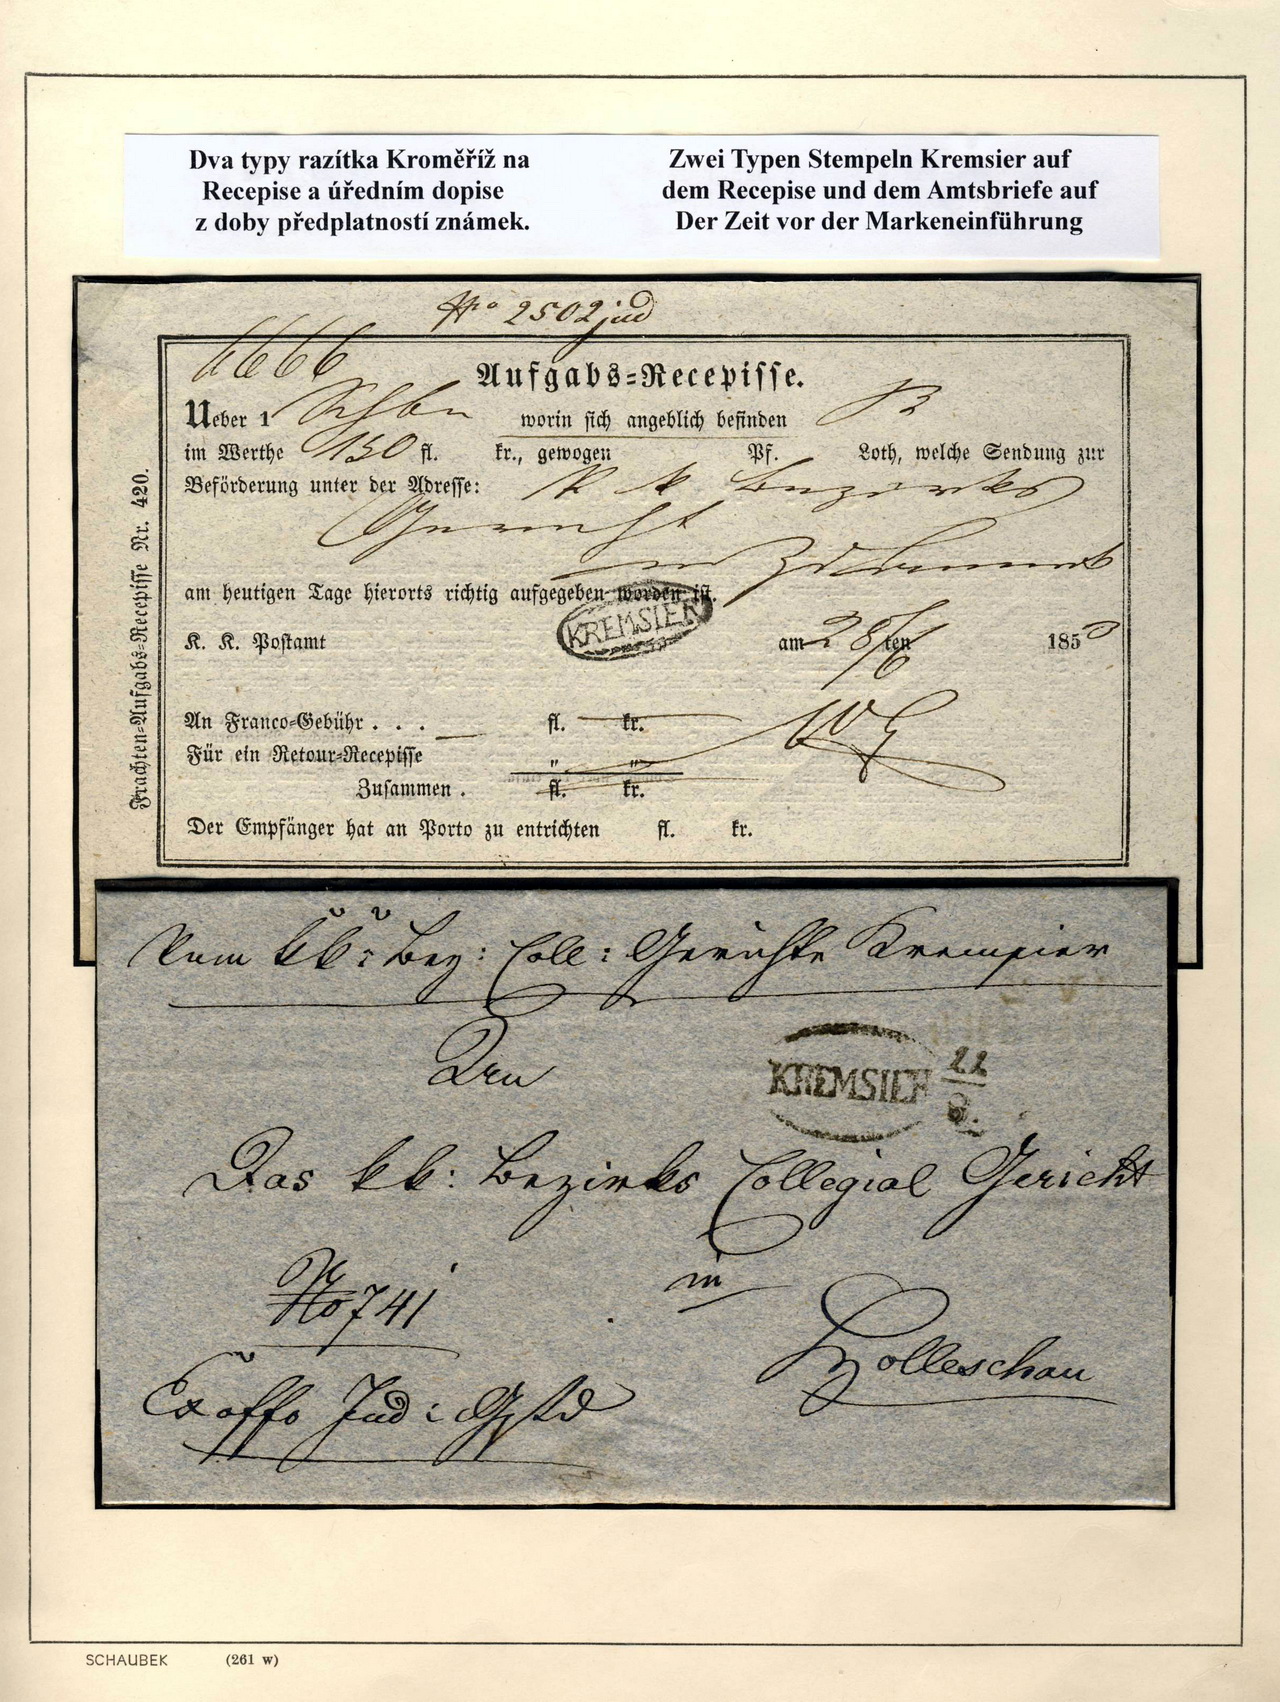 Dva typy razítka Kroměříž na
Recepise a úředním dopise
z doby předplatností známek.
Zwei Typen Stempeln Kremsier auf
dem Recepise und dem Amtsbriefe auf
Der Zeit vor der Markeneinführung
No 2502 jud
6666
Aufgabs-Recepisse.
Ueber 1 worin sich angeblich befinden
im Werthe 150 fl. kr., gewogen Pf. Loth, welche Sendung zur
Beförderung unter der Adresse: K k Bezirks
Gericht
in
am heutigen Tage hierorts richtig aufgegeben worden ist.
KREMSIER
K. K. Postamt am 28/6 ten 1850
An Franco-Gebühr . . . fl. kr.
Für ein Retour-Recepisse " "
Zusammen . fl. kr.
Der Empfänger hat an Porto zu entrichten fl. kr.
Frachten-Aufgabs-Recepisse Nr. 420.
Vom kk: Bez: Coll: Gerichte Kremsier
An
KREMSIER 22/8.
Das kk: Bezirks Collegial Gericht
No 741
in
Holleschau
Ex offo Jud:
SCHAUBEK (261 w)